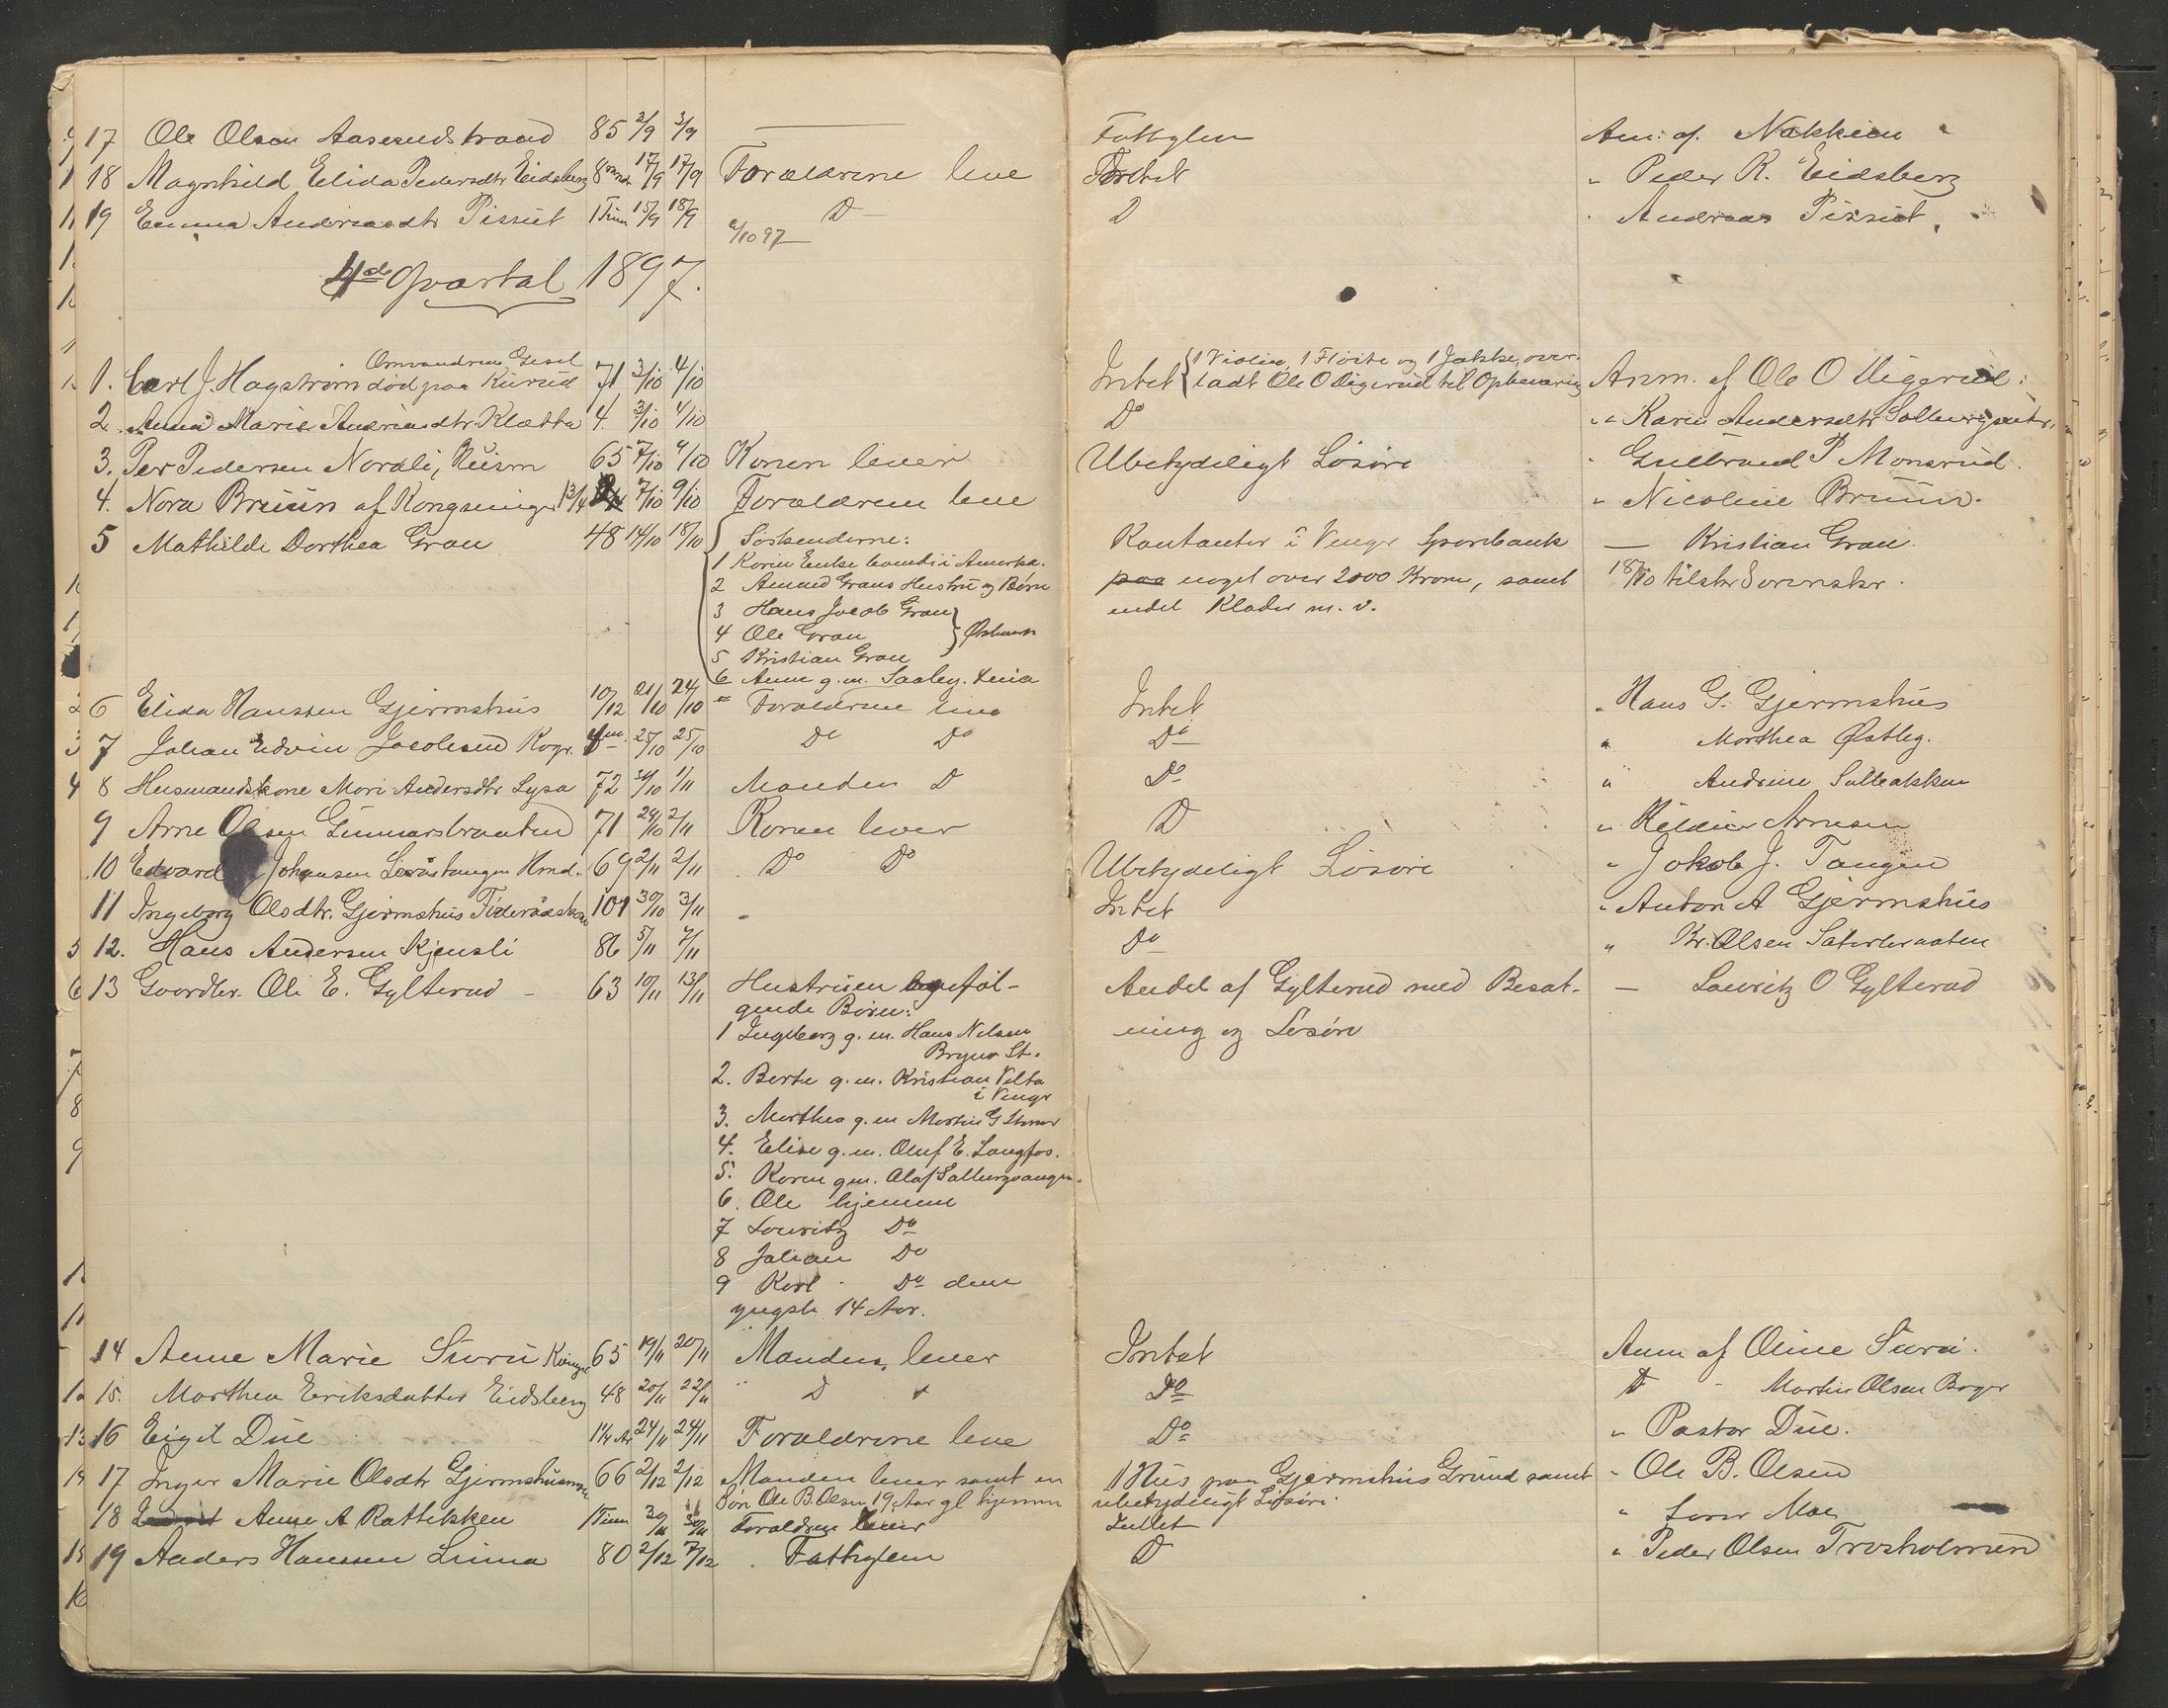 17 Ole Olsen Aaserudstrand 85 2/9 3/9 — Fattiglem Anm. af Nakkien
18 Magnhild Elida Pedersdtr Eidsberg 8 mndr 17/9 17/9 Forældrene leve Intet " Peder R. Eidsberg
19 Emma Andreasdtr Pissiet 1 Time 15/9 18/9 D D " Andreas Pissiet
/10 97
4de Qvartal 1897.
Omvandrene Gesel
1 Violin, 1 Fløite og 1 Jakke, over-
1. Carl J. Hagstrøm død paa Kurud 71 3/10 4/10 Intet ladt Ole O Digerud til Opbevaring Anm. af Ole O Digerud.
2. Anna Marie Andreasdtr Klætta 4. 3/10 4/10 Do " Karen Andersdtr
3. Per Pedersen Nordli, Huism 65 7/10 9/10 Konen lever Ubetydeligt Løsøre " Gulbrand P Monsrud.
4. Nora Bruun af Kongsvinger 1 3/4 7/10 9/10 Forældrene leve " Nicoline Bruun.
5 Mathilde Dorthea Gran 48 14/10 18/10 Søskenderne: Kontanter i Vinger Sparebank — Kristian Gran.
1 Karen Enke boende i Amerika.
2 Amund Grans Hustru og Børn noget over 2000 Kroner, samt 18/10 tilskr Sorenskr.
3 Hans Jacob Gran endel Klæder m. v.
4 Ole Gran
5 Kristian Gran
6 Anne g. m.
6 Elida Hanssen Gjermshus 10/12 21/10 24/10 " Forældrene leve Intet " Hans G. Gjermshus
7 Johan Edvin Jacobsen Rogr. 25/10 25/10 Do Do Do " Marthea Østbg.
8 Husmandskone Mari Andersdtr Lysa 72 30/10 1/11 Manden D Do " Andrine Solbakken
9 Arne Olsen Gunnarsbraaten 71 29/10 2/11 Konen lever D " Arnesen
10 Edvard Johansen Hmd. 69 2/11 2/11 Do Do Ubetydeligt Løsøre " Jakob J. Tangen
11 Ingeborg Olsdtr. Gjermshus Føderaadskone 101 30/10 3/11 - Intet " Anton A Gjermshus
12. Hans Andersen Kjensli 86 5/11 7/11 Do " Kr. Olsen Sæterbraaten
13 Gaardbr. Ole E. Gylterud - 63 10/11 13/11 Hustruen og føl- Andel af Gylterud med Besæt- — Lauritz O Gylterud
gende Børn: ning og Løsøre
1 Ingeborg g. m. Hans Nilsen
Bryna St.
2. Berte g. m. Kristian Velta
i Vinger
3. Marthea g. m Martin G
4. Elise g. m. Oluf E. Langfos.
5. Karen g m. Olaf Solbergsangen.
6. Ole hjemme
7 Lauritz Do
8 Johan Do
9 Karl Do den
yngste 14 Aar.
14 Anne Marie Suru Kvinge 65 19/11 20/11 Manden lever Intet Anm af Oline Suru.
15. Marthea Eriksdatter Eidsberg 48 20/11 22/11 " D Do D - Martin Olsen Bager
16 Eigil Due 1 1/4 Ar 24/11 24/11 Forældrene leve Do " Pastor Due.
17 Inger Marie Olsdtr Gjermshusmoen 66 2/12 2/12 Manden lever samt en 1 Hus paa Gjermshus Grund samt " Ole B. Olsen
Søn Ole B. Olsen 19 Aar gl hjemme ubetydeligt Løsøre.
18 Anne A Rattikken 1 Time 30/11 30/11 Forældrene lever Intet " Moe
19 Anders Hanssen Lima 80 2/12 7/12 Fattiglem D " Peder Olsen Trosholmen